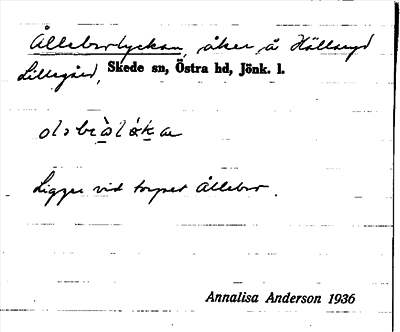 Ållebrolyckan, åker å Hällaryd
Lillegård, Skede sn, Östra hd, Jönk. l.
Ligger vid torpet Ållebro.
Annalisa Anderson 1936